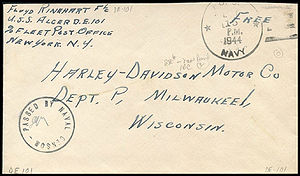 Floyd Rinehart F⅟c DE-101
U.S.S. Alger D.E. 101
℅ Fleet Post Office
New York. N.Y.
Free
U.S.
P.M.
1944
NAVY
Harley-Davidson Motor Co
Dept. P, Milwaukee 1,
Wisconsin.
PASSED BY NAVAL CENSOR
DE 101
DE-101